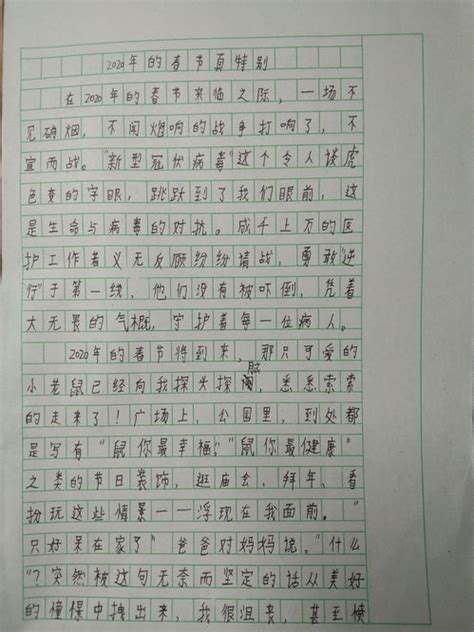 2020年的春节真特别
在2020年的春节来临之际，一场不
见硝烟，不闻炮响的战争打响了，不
宣而战。“新型冠状病毒”这个令人谈虎
色变的字眼，跳跃到了我们眼前，这
是生命与病毒的对抗。成千上万的医
护工作者义无反顾纷纷请战，勇敢“逆
行”于第一线，他们没有被吓倒，凭着
大无畏的气概，守护着每一位病人。
2020年的春节将到来，那只可爱的
小老鼠已经向我探头探脑，悉悉索索
的走来了！广场上，公园里，到处都
是写有“鼠你最幸福”，“鼠你最健康”
之类的节日装饰，逛庙会、拜年、看
扮玩这些情景一一浮现在我面前。“
只好呆在家了”爸爸对妈妈说。“什么
”？突然被这句无奈而坚定的话从美好
的憧憬中拽出来，我很沮丧，甚至